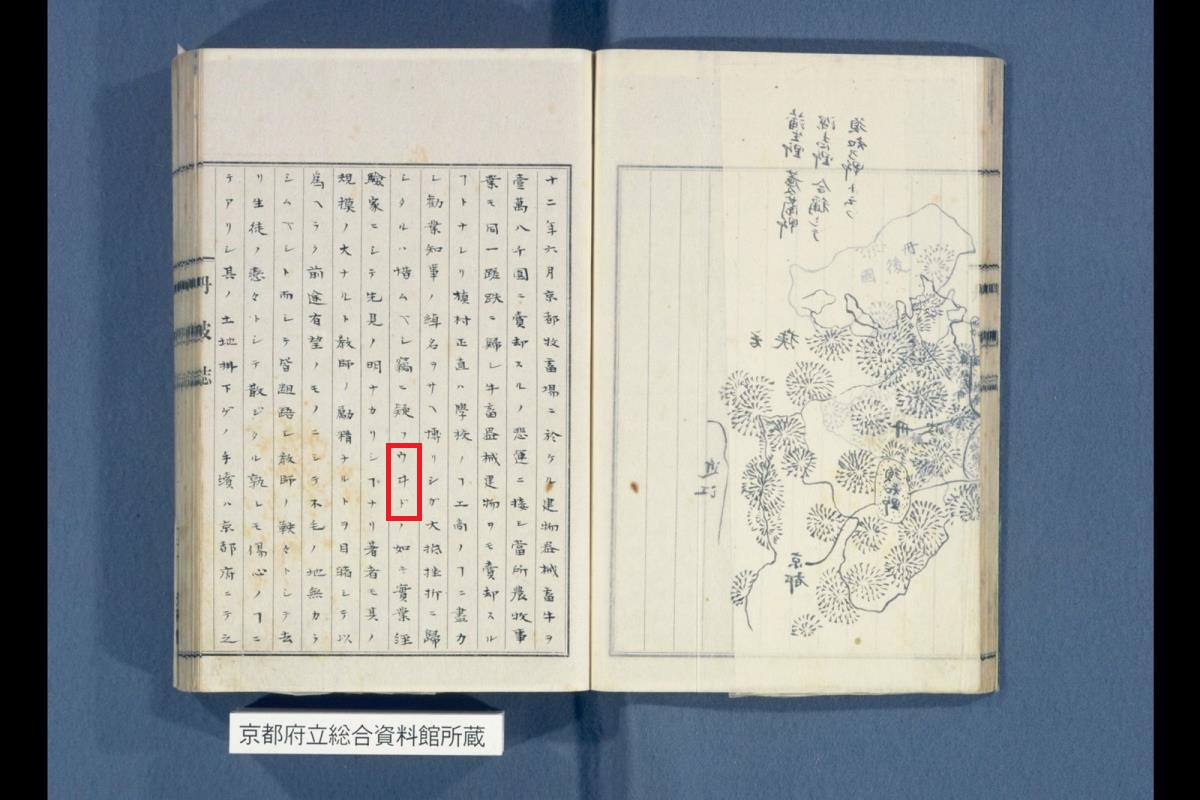 丹後國
近江
京都
十二年六月京都牧畜場ニ於ケル建物器械畜牛ヲ
壹萬八千圓ニ賣却スルノ悲運ニ接シ當所農牧事
業モ同一蹉跌ニ歸シ牛畜器械建物ヲモ賣却スル
ヿトナレリ槇村正直ハ學校ノヿ工商ノヿニ盡力
シ勸業知事ノ綽名ヲサヘ博リシガ大抵挫折ニ歸
シタルハ惜ムベシ竊ニ疑フウヰドノ如キ實業經
驗家ニシテ先見ノ明ナカリシヿナリ著者モ其ノ
規模ノ大ナルト教師ノ勵精ナルトヲ目睹シテ以
爲ヘラク前途有望ノモノニシテ不毛ノ地無カラ
シムベシト而シテ皆齟齬シ教師ノ鞅々トシテ去
リ生徒ノ悉々トシテ散ジタル孰レモ傷心ノヿニ
テアリシ其ノ土地拂下ゲノ手續ハ京都府ニテ之
丹波誌
京都府立総合資料館所蔵